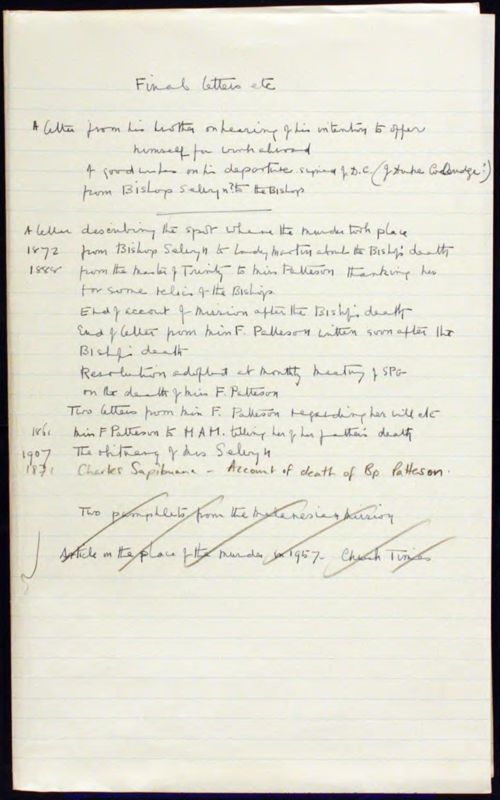 Final letters etc
A letter from his brother on hearing of his intention to offer
himself for work abroad
A good wishes on his departure signed J.D.C. (J Duke Coleridge?)
from Bishop Selwyn? to the Bishop
A letter describing the spot where the murder took place
1872 from Bishop Selwyn to Lady Martin about the Bishp's death
1888 from the Master of Trinity to Miss Patteson thanking her
for some relics of the Bishops
End of account of Mission after the Bishp's death
End of letter from Miss F. Patteson written soon after the
Bishp's death
Resolution adopted at monthly meeting of SPG
on the death of Miss F. Patteson
Two letters from Miss F. Patteson regarding her will etc
1861 Miss F Patteson to M A M. telling her of her father's death
1907 The obituary of Mrs Selwyn
1871 Charles Sapibuana - Account of death of Bp Patteson.
Two pamphlets from the Melanesian Mission
Article on the place of the murder in 1957 - Church Times